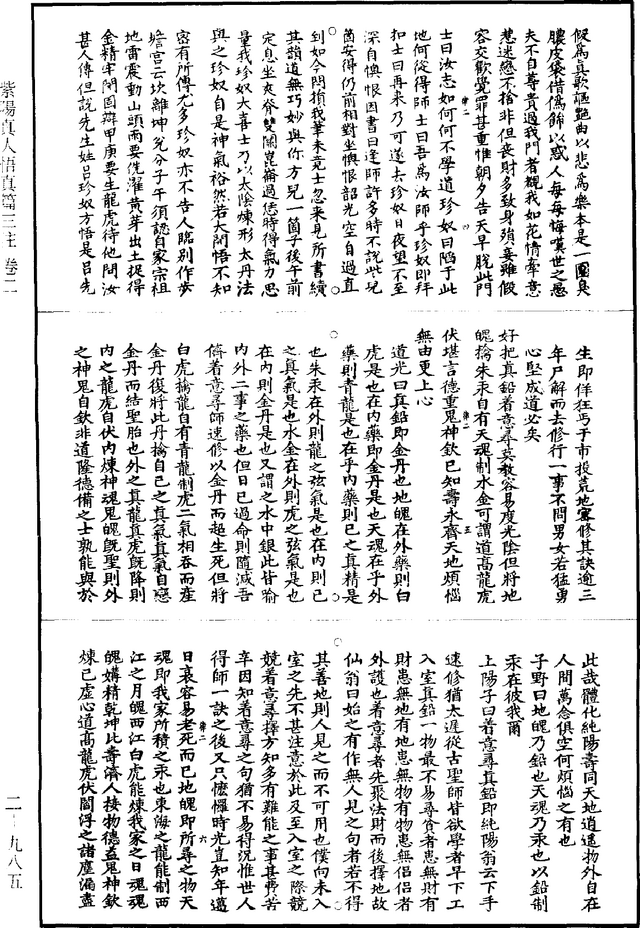 假為真歌謳艷曲以悲為樂本是一團臭
膿皮袋借偽飾以惑人每每悔嘆世之愚
夫不自尊貴過我門者覩我如花情牽意
惹迷戀不捨非但丧財多致身殞妾雖假
容交歡覺罪甚重惟朝夕告天早脫此門
律二 四
士曰汝志如何何不學道珍奴曰陷于此
地何從得師士曰吾為汝師乎珍奴即拜
扣士曰再来乃可遂去珍奴日夜望不至
深自懊恨因書曰逢師許多時不說些兒
箇安得仍前相對坐懊恨韶光空自過直
到如今悶損我筆未竟士忽来見所書續
其韻道無巧妙與你方兒一箇子後午前
定息坐夾脊雙關崑崙過恁時得氣力思
量我珍奴大喜士乃以太陰煉形太丹法
與之珍奴自是神氣裕然若大開悟不知
密有所傳尤多珍奴亦不告人臨別作步
蟾宫云坎離坤兊分子午須認自家宗祖
地雷震動山頭雨要洗濯黄芽出土捉得
金精牢閉固辯甲庚要生龍虎待他問汝
甚人傳但說先生姓吕珍奴方悟是吕先
生即佯狂丐于市投荒地密修其訣逾三
年尸解而去修行一事不問男女若猛勇
心堅成道必矣
好把真鉛着意尋莫教容易度光陰但將地
魄擒朱汞自有天魂制水金可謂道高龍虎
律二 五
伏堪言德重鬼神欽已知壽永齊天地煩惱
無由更上心
道光曰真鉛即金丹也地魄在外藥則白
虎是也在内藥即金丹是也天魂在乎外
藥則青龍是也在乎内藥則已之真精是
也朱汞在外則龍之弦氣是也在内則已
之真氣是也水金在外則虎之弦氣是也
在内則金丹是也又謂之水中銀此皆喻
内外二事之藥也但日已過命則隨減吾
儕着意尋師速修以金丹而超生死但将
白虎擒龍自有青龍制虎二氣相吞而産
金丹復將此丹擒自己之真氣真氣自戀
金丹而結聖胎也外之真龍真虎既降則
内之龍虎自伏内煉神魂鬼魄既聖則外
之神鬼自欽非道隆德備之士孰能與於
此哉體化純陽壽同天地逍遙物外自在
人間萬念俱空何煩惱之有也
子野曰地魄乃鉛也天魂乃汞也以鉛制
汞在彼我爾
上陽子曰着意尋真鉛即純陽翁云下手
速修猶太遲從古聖師皆欲學者早下工
入室真鉛一物最不易尋貧者患無財有
財患無地有地患無物有物患無侣侣者
外護也着意尋者先聚法財而後擇地故
仙翁曰始之有作無人見之句者若不得
其善地則人見之而不可用也僕向未入
室之先不甚注意於此及至入室之際競
競着意尋擇方知多有難能之事甚費苦
辛因知着意尋之句猶不易得況惟世人
得師一訣之後又只懡㦬時光豈知年邁
律二 六
日衰容易老死而已地魄即所尋之物天
魂即我家所積之汞也東海之龍能制西
江之月魄西江白虎能煉我家之日魂魂
魄媾精乾坤比壽濟人接物德盖鬼神欽
煉己虚心道高龍虎伏閻浮之諸塵漏盡
紫陽真人悟真篇三注 卷二
二－九八五